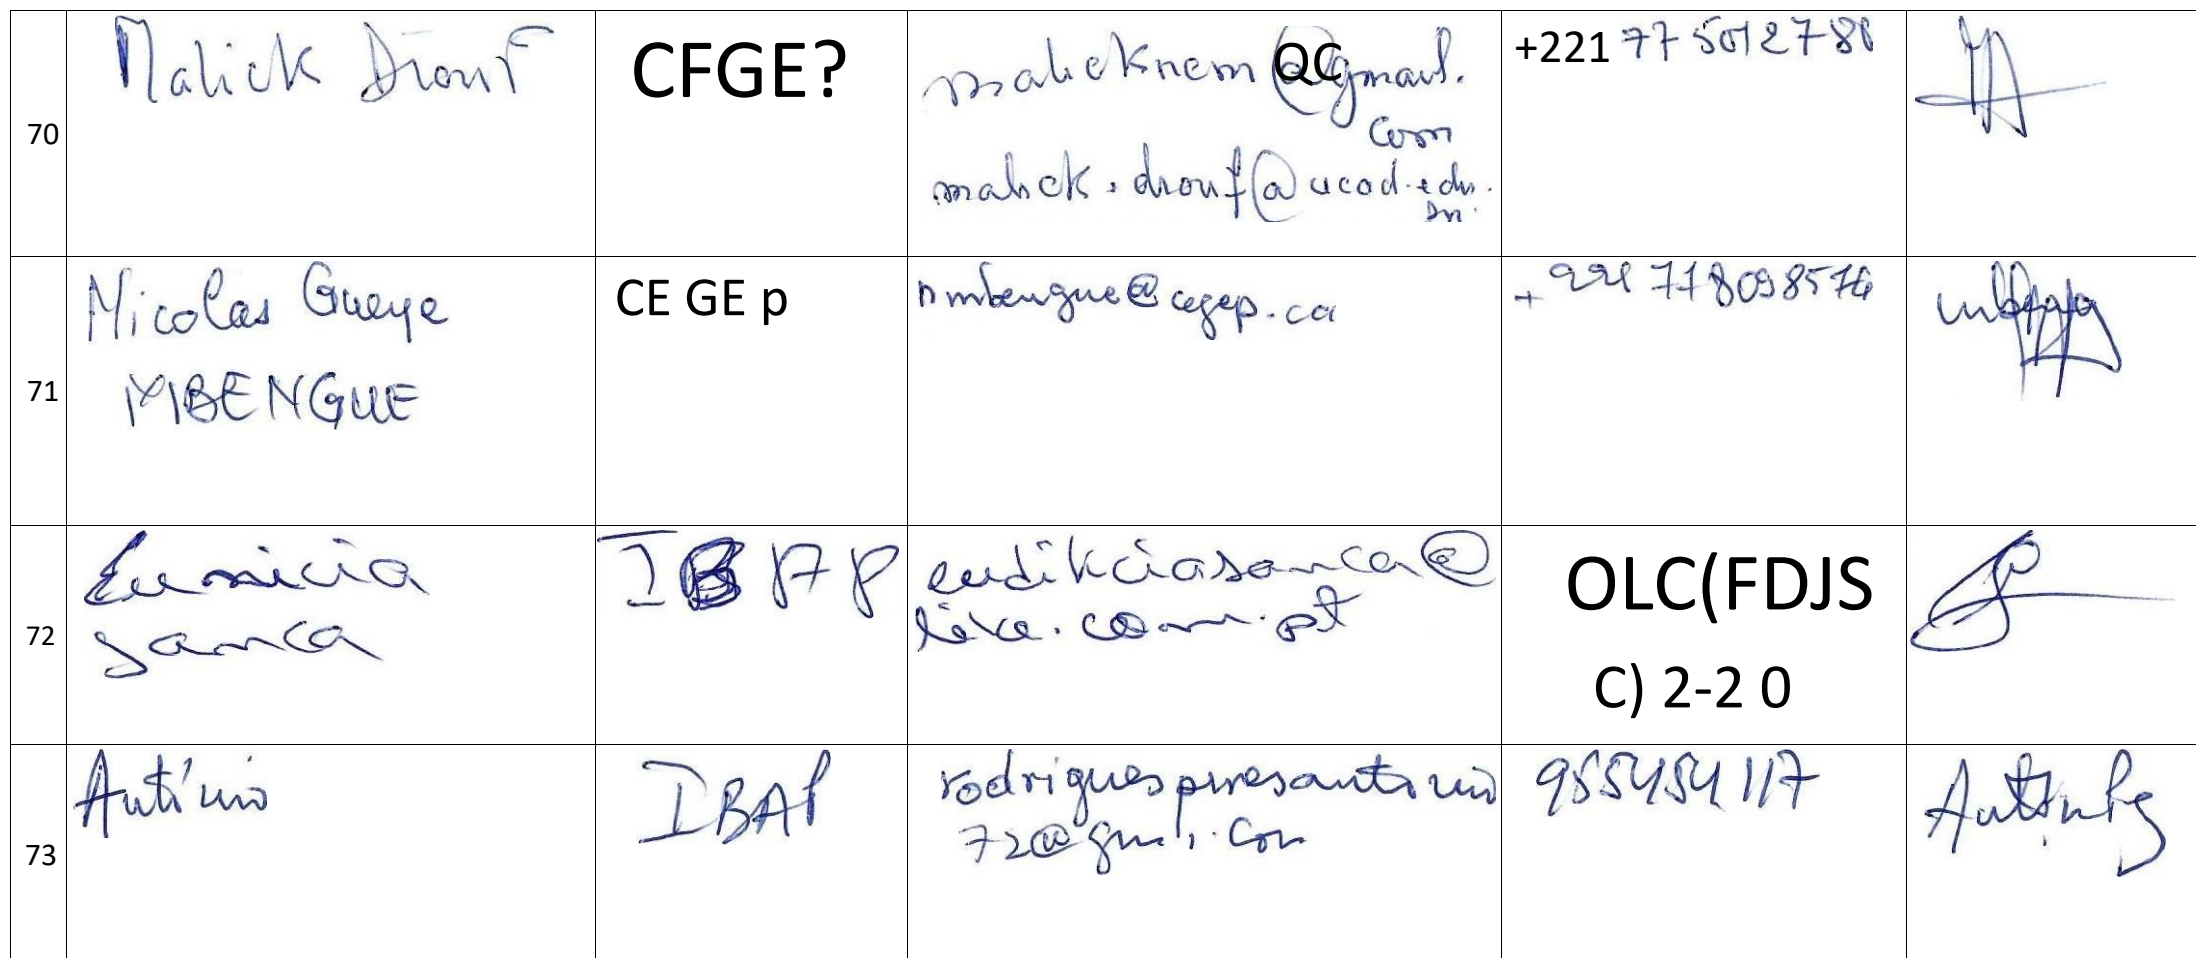 70
Malick Diouf
CFGE?
malicknem@gmail.
QC
com
malick.diouf@ucad.edu.
sn.
+221 77 5012780
71
Nicolas Gueye
MBENGUE
CE GE p
nmbengue@cegep.ca
+ 221 778098576
72
Eunicia
Sanca
IBAP
eudikciasanca@
live.com.pt
OLC(FDJS
C) 2-2 0
73
António
IBAP
rodriguespiresantonio
72@gmail.com
955454117